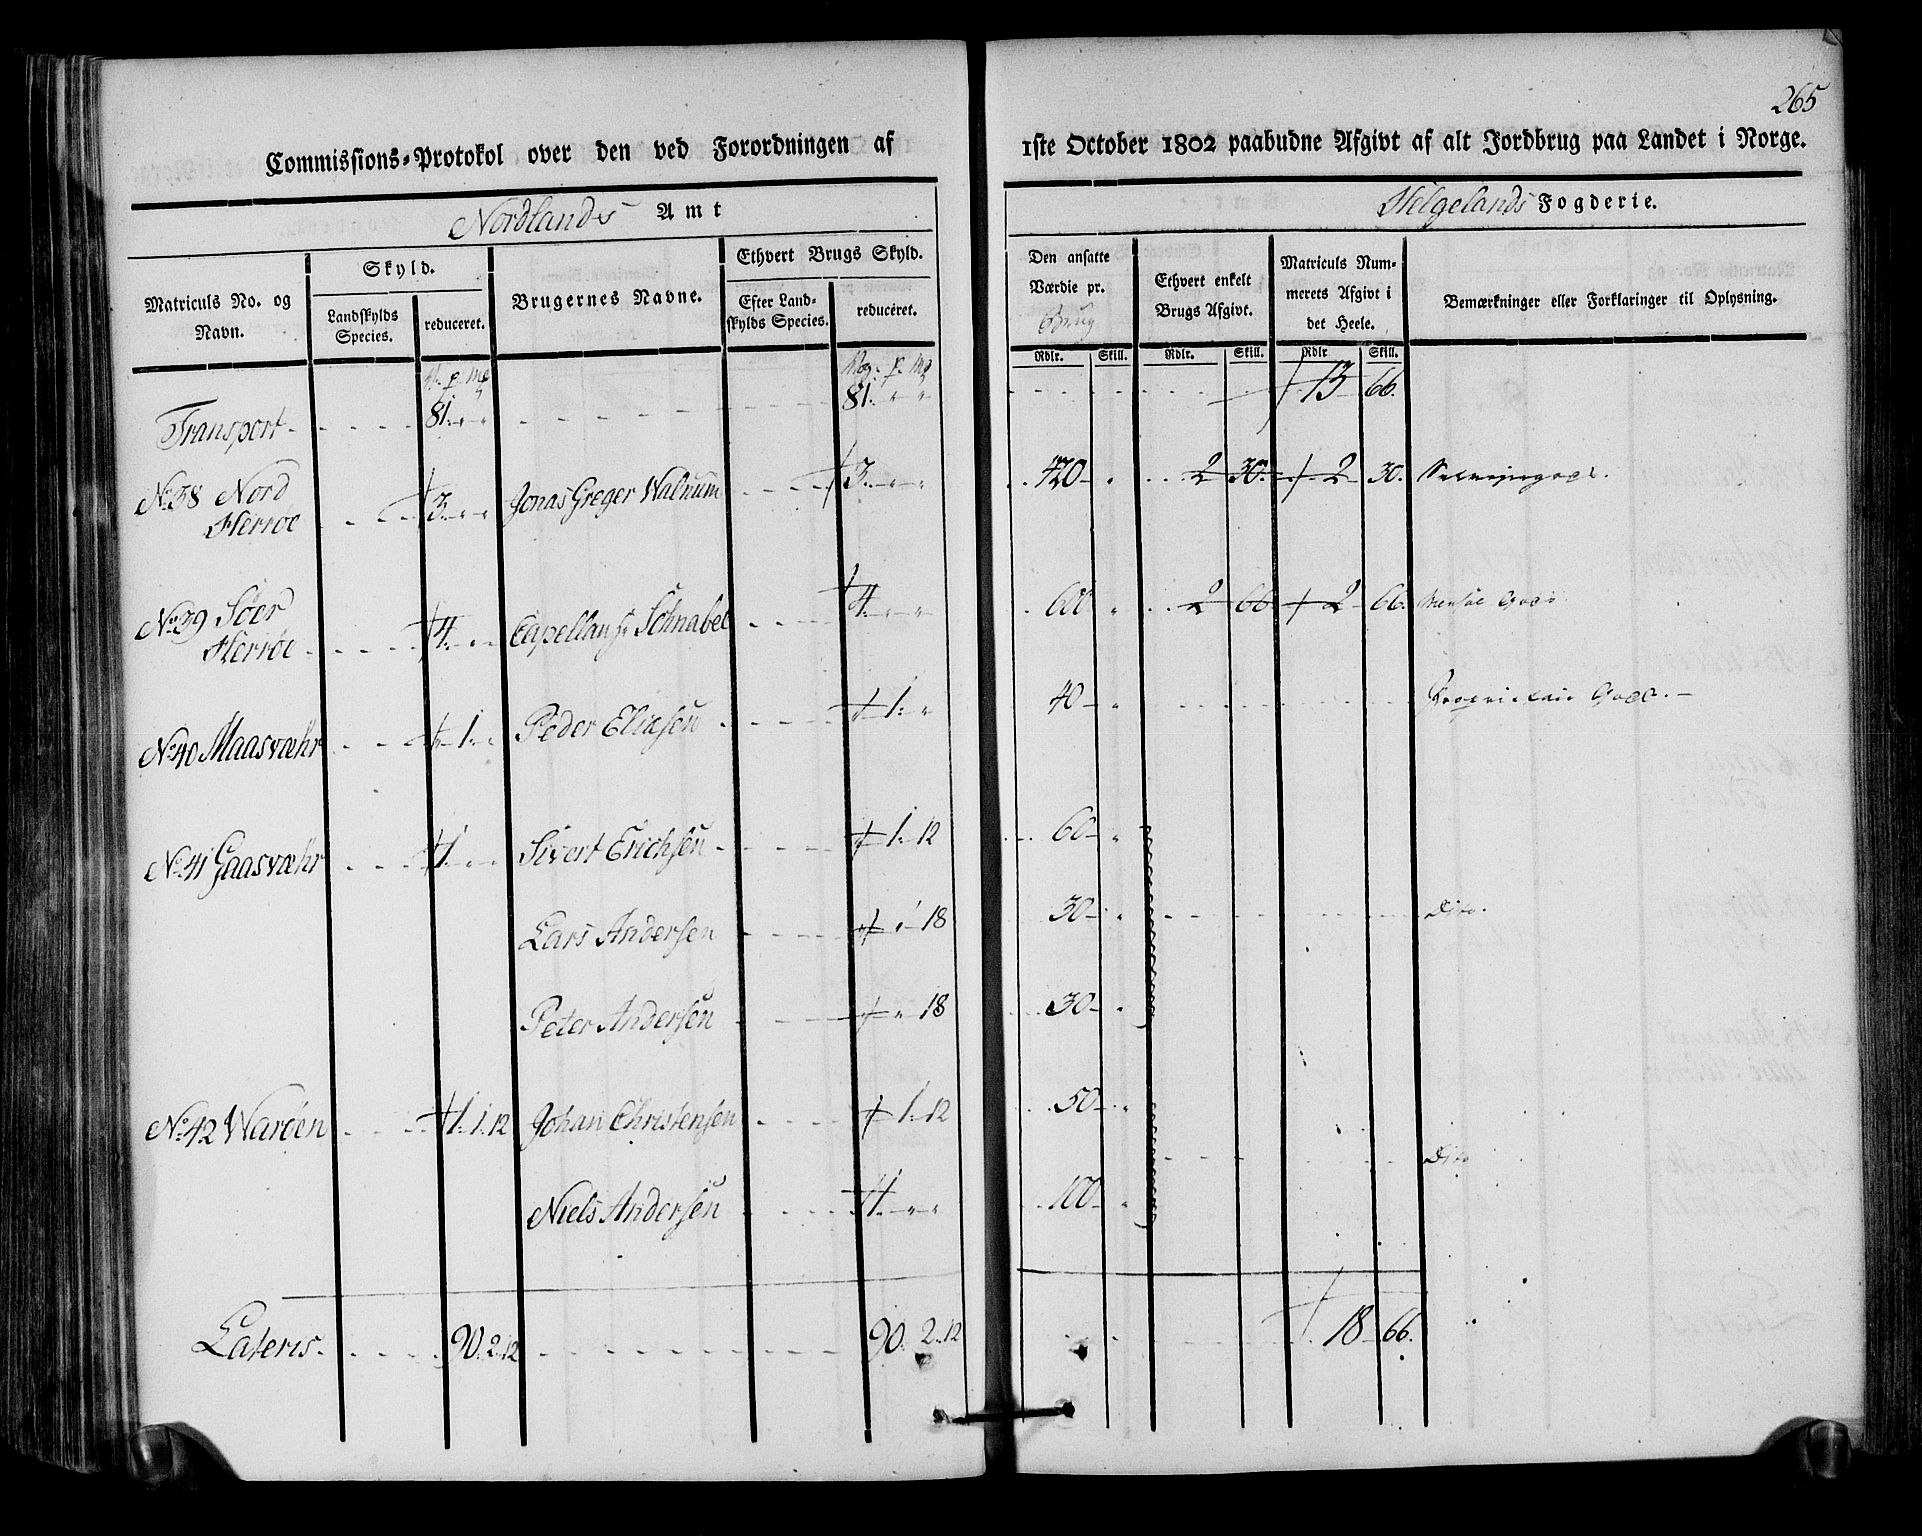 265
Commissions-Protokol over den ved Forordningen af 1ste October 1802 paabudne Afgivt af alt Jordbrug paa Landet i Norge.
Nordlands Amt Helgelands Fogderie.
Matriculs No. og Navn. Skyld. Landskylds Species. reduceret. Brugernes Navne. Ethvert Brugs Skyld. Efter Landskylds Species. reduceret. Den ansatte Værdie pr. Brug Ethvert enkelt Brugs Afgivt. Matriculs Nummerets Afgivt i det Heele. Bemærkninger eller Forklaringer til Oplysning.
Rdlr. Skill. Rdlr. Skill. Rdlr Skill.
p. mg p. mg
Transport 81. " " 81. " " 13 66.
No. 38 Nord Herröe 3. " " Jonas Greger Walnum 3. " " 420 " 2 30. 2 30.
No. 39 Söer Herröe 4. " " Capellan Hr Schnabel 4. " " 600 " 2 66 2 66. Bensal Gods
No. 40 Maasvæhr 1. " Peder Eliasen 1. " 40 " Proprietair Gods.
No. 41 Gaasvæhr 1. " " Sivert Erichsen 1. 12 60 "
Lars Andersen " 18 30 " Dito.
Peter Andersen " 18 30 "
No. 42 Waröen 1. 1. 12 Johan Christensen 1. 12 50 "
Dito
Niels Andersen 1. " " 100 "
Lateris. 90. 2. 12 90. 2. 12 18 66.